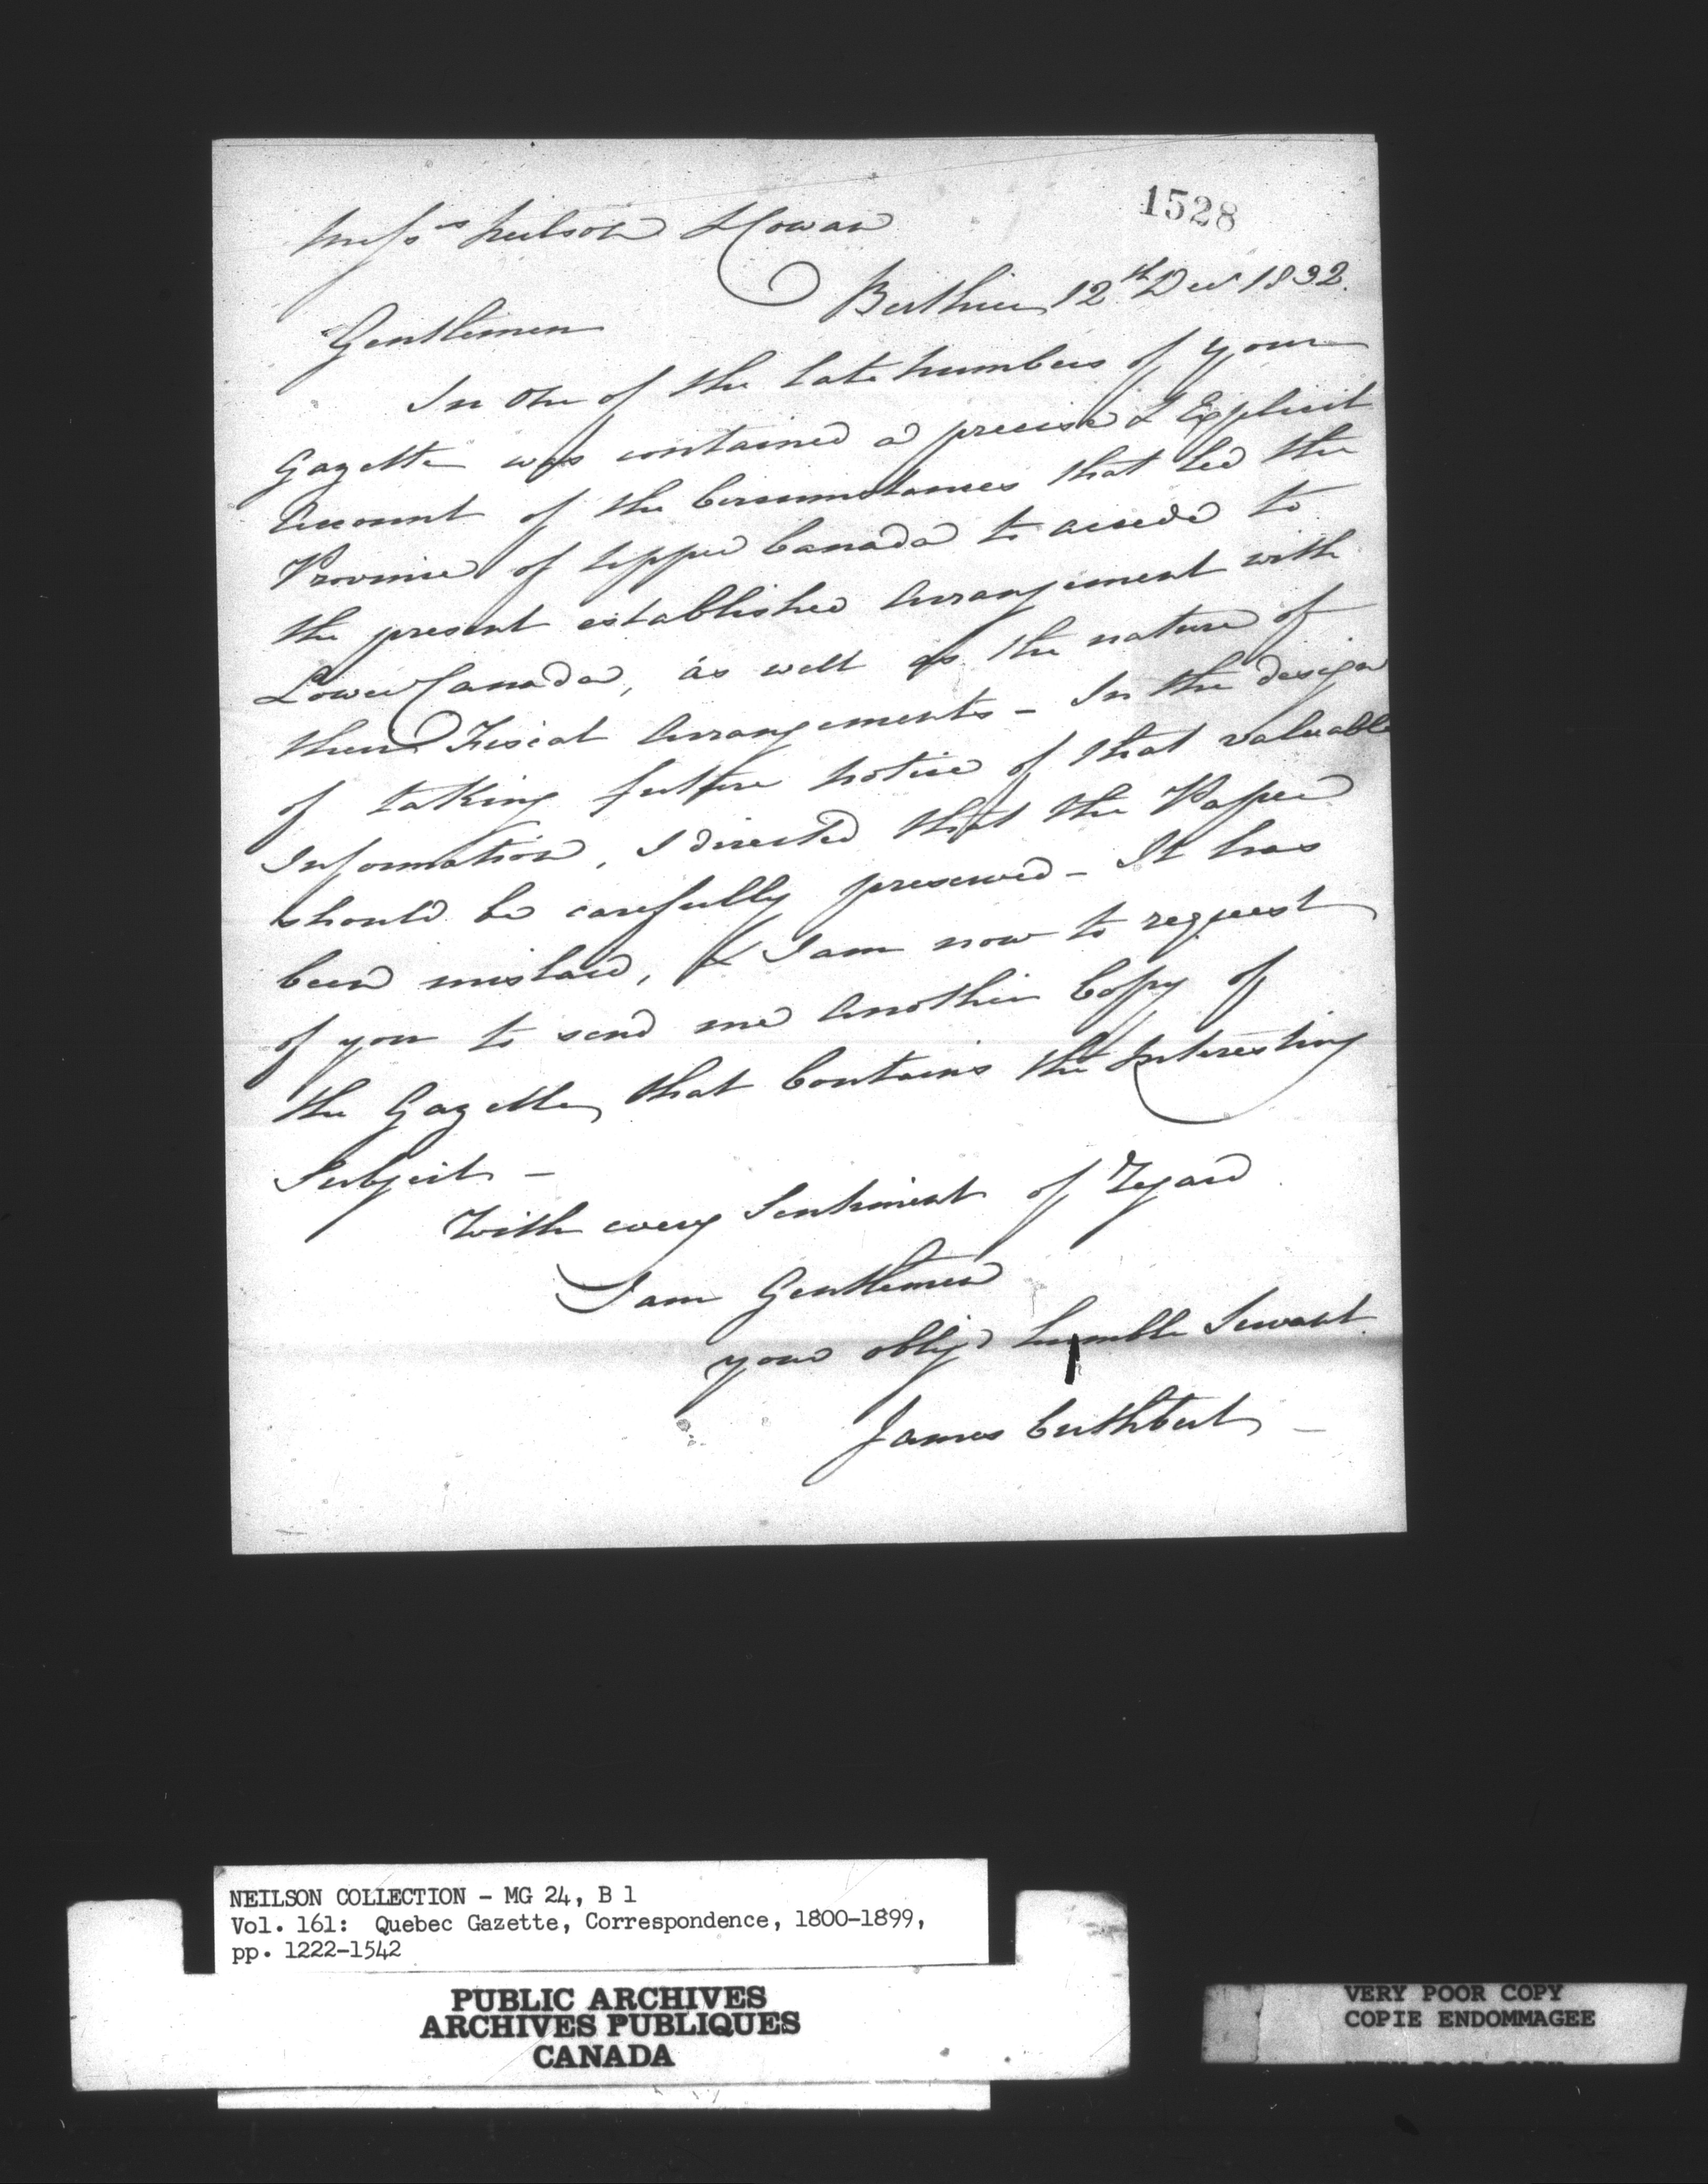 1528
Messrs Neilson & Cowan
Berthier 12th Decr 1832.
Gentlemen
In One of the late Numbers of your
Gazette was contained a precise & Explicit
Account of the Circumstances that led the
Province of Upper Canada to accede to
the present established Arrangement with
Lower Canada, as well as the nature of
their Fiscal Arrangements - In the design
of taking future notice of that valuable
Information, I directed that the Paper
should be carefully preserved - It has
been mislaid, & I am now to request
of you to send me Another Copy of
the Gazette that Contains the Interesting
Subject -
With every Sentiment of Regard
I am Gentlemen
your oblig'd humble Servant
James Cuthbert -
NEILSON COLLECTION - MG 24, B 1
Vol. 161: Quebec Gazette, Correspondence, 1800-1899,
pp. 1222-1542
PUBLIC ARCHIVES
ARCHIVES PUBLIQUES
CANADA
VERY POOR COPY
COPIE ENDOMMAGEE
VERY POOR COPY